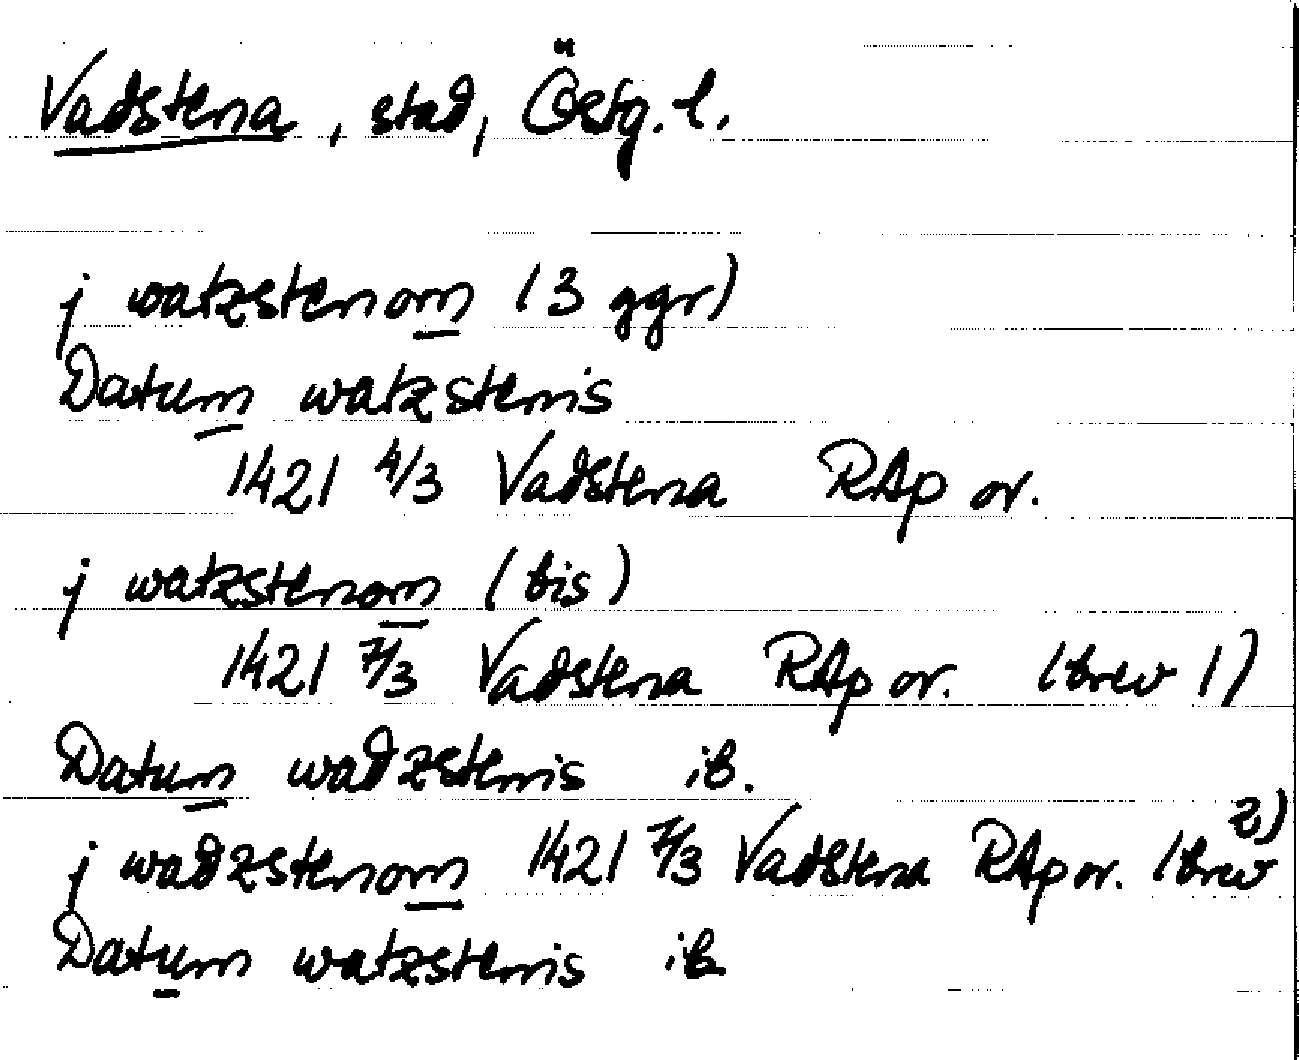 Vadstena, stad, Östg. l.
j watzstenom (3 ggr)
Datum watzstenis
1421 4/3 Vadstena RAp or.
j watzstenom (bis)
1421 7/3 Vadstena RAp or. (brev 1)
Datum wadzstenis ib.
j wadzstenom 1421 7/3 Vadstena RAp or. (brev 2)
Datum watzstenis ib.